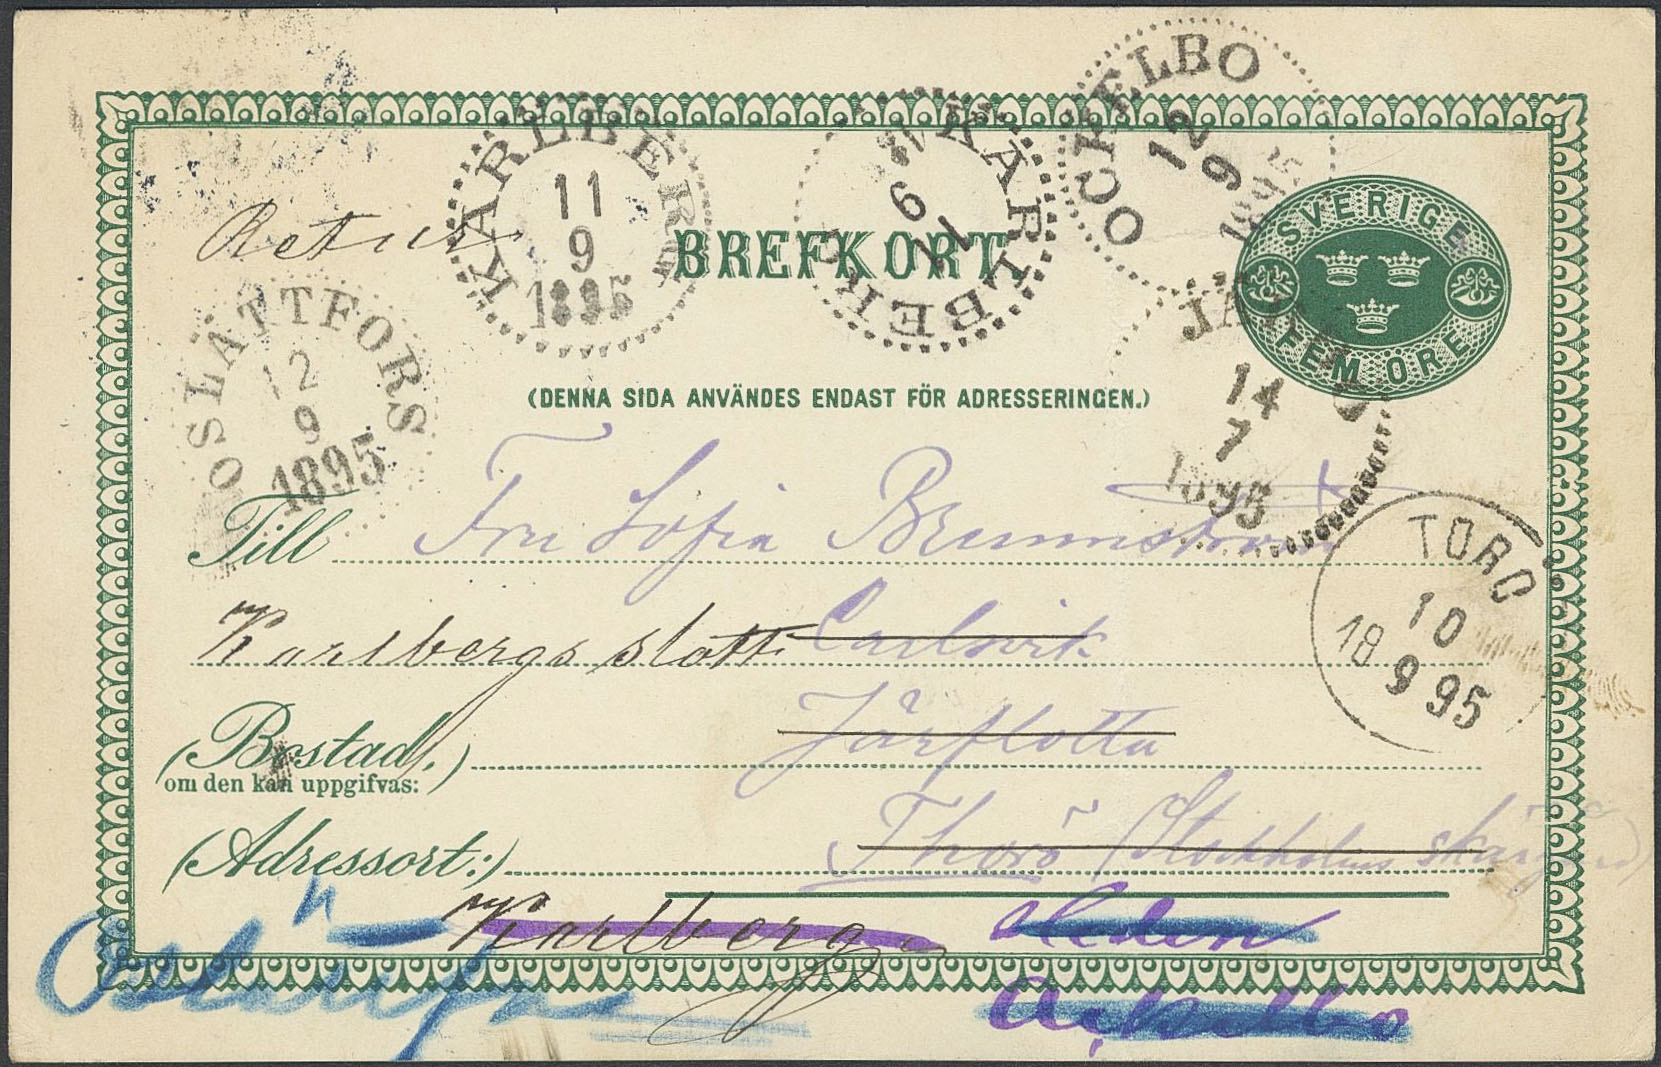 OCKELBO
12
9
1895
KARLBERG
11
9
1895
KARLBERG
11
9
SVERIGE
FEM ÖRE
Retur
BREFKORT.
OSLÄTTFORS
12
9
1895
JÄDRAÅS
14
7
1895
(DENNA SIDA ANVÄNDES ENDAST FÖR ADRESSERINGEN.)
Till Fru Sofia Brunnström
TORÖ
10
18 9 95
Karlbergs slott Carlsvik
(Bostad, Järflotta
om den kan uppgifvas:)
(Adressort:) Thorö (Stockholms skärgård)
Karlberg
Oslättfors